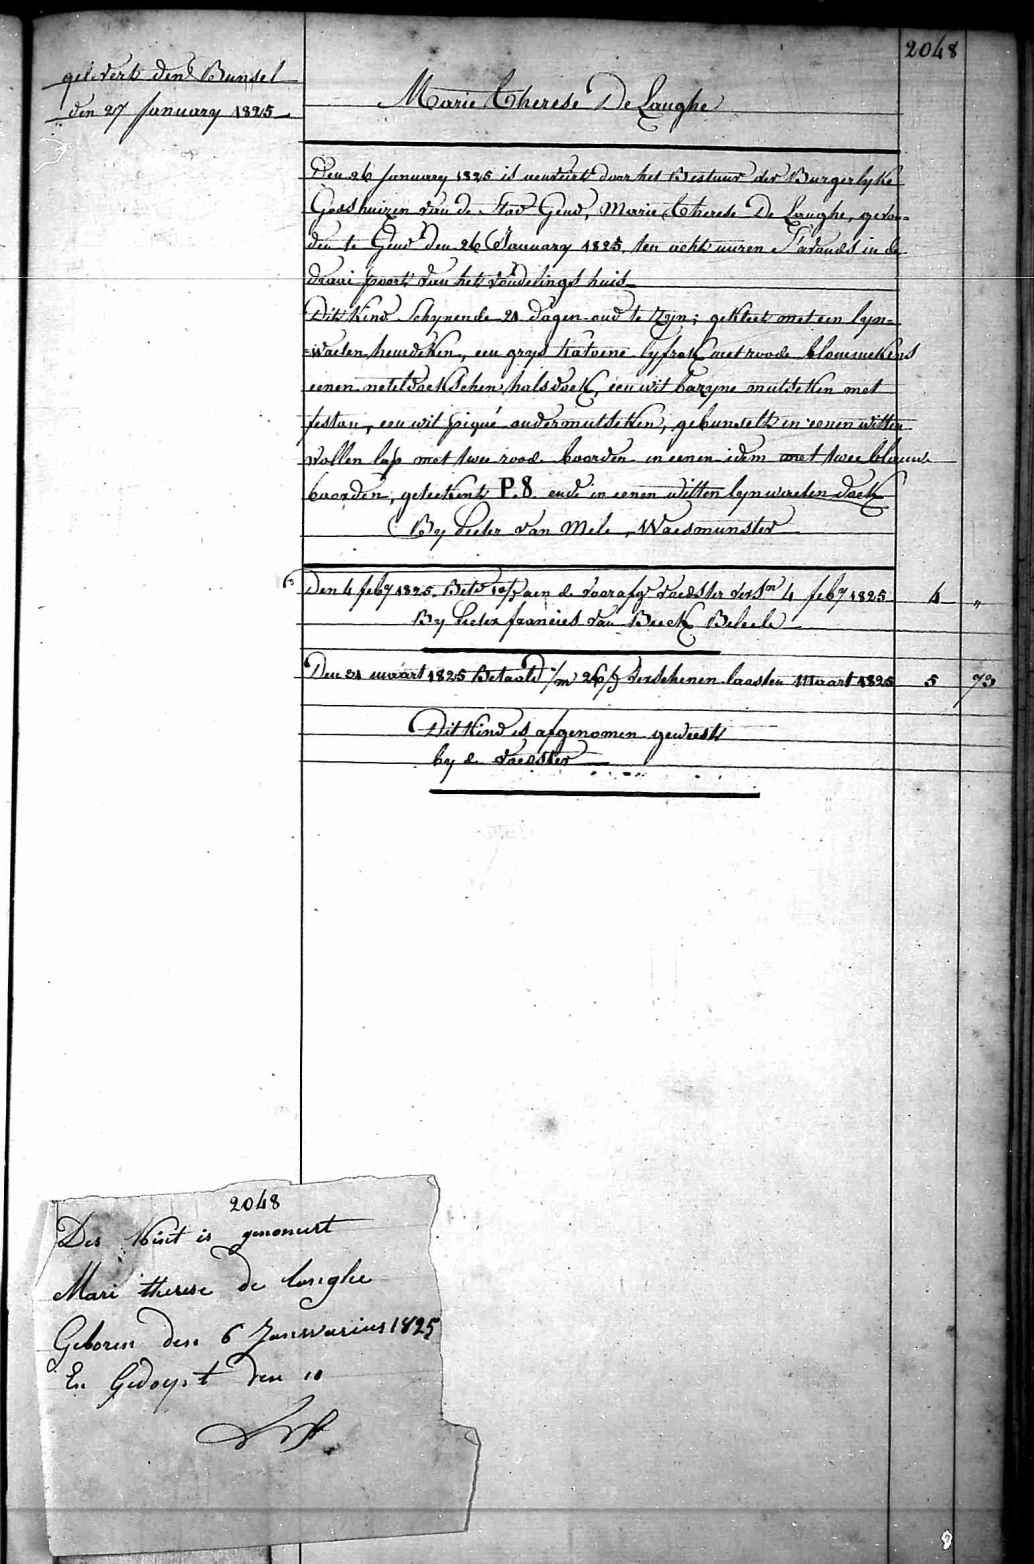 2048
gelevert den Bunsel
den 27 January 1825
Marie Therese De Langhe
Den 26 January 1825 is aenveirt door het Bestuur der Burgerlyke
Godshuizen van de Stad Gend, Marie Therese De Langhe, gevon-
den te Gend den 26 January 1825, ten acht uuren S'avonds in de
draai poort van het vondelings huis
Dit kind schynende 21 dagen oud te zyn; gekleet met een lyn-
waeten hemdeken, een grys katoene lyfrok met roode blommekens
eenen neteldoekschen halsdoek, een wit bazyne mutseken met
feston, een wit piqué ondermutseken, gebunselt in eenen witten
wollen lap met twee roode boorden in eenen idem met twee blauwe
boorden, geteekent P.8. ende in eenen witten lynwaeten doek
By Pieter van Mele, Waesmunster
Den 4 feby 1825 Bet aen de voorafg voedster vers 4 feby 1825 4 "
By Pieter francies van Beeck Belsele
Den 31 maart 1825 Betaald 26/ verschenen laasten Maart 1825 5 73
Dit kind is afgenomen geweest
by de voedster
2048
Des Kint is genomt
Mari therese de langhe
Geboren den 6 Januwarius 1825
En Gedoopt den 10